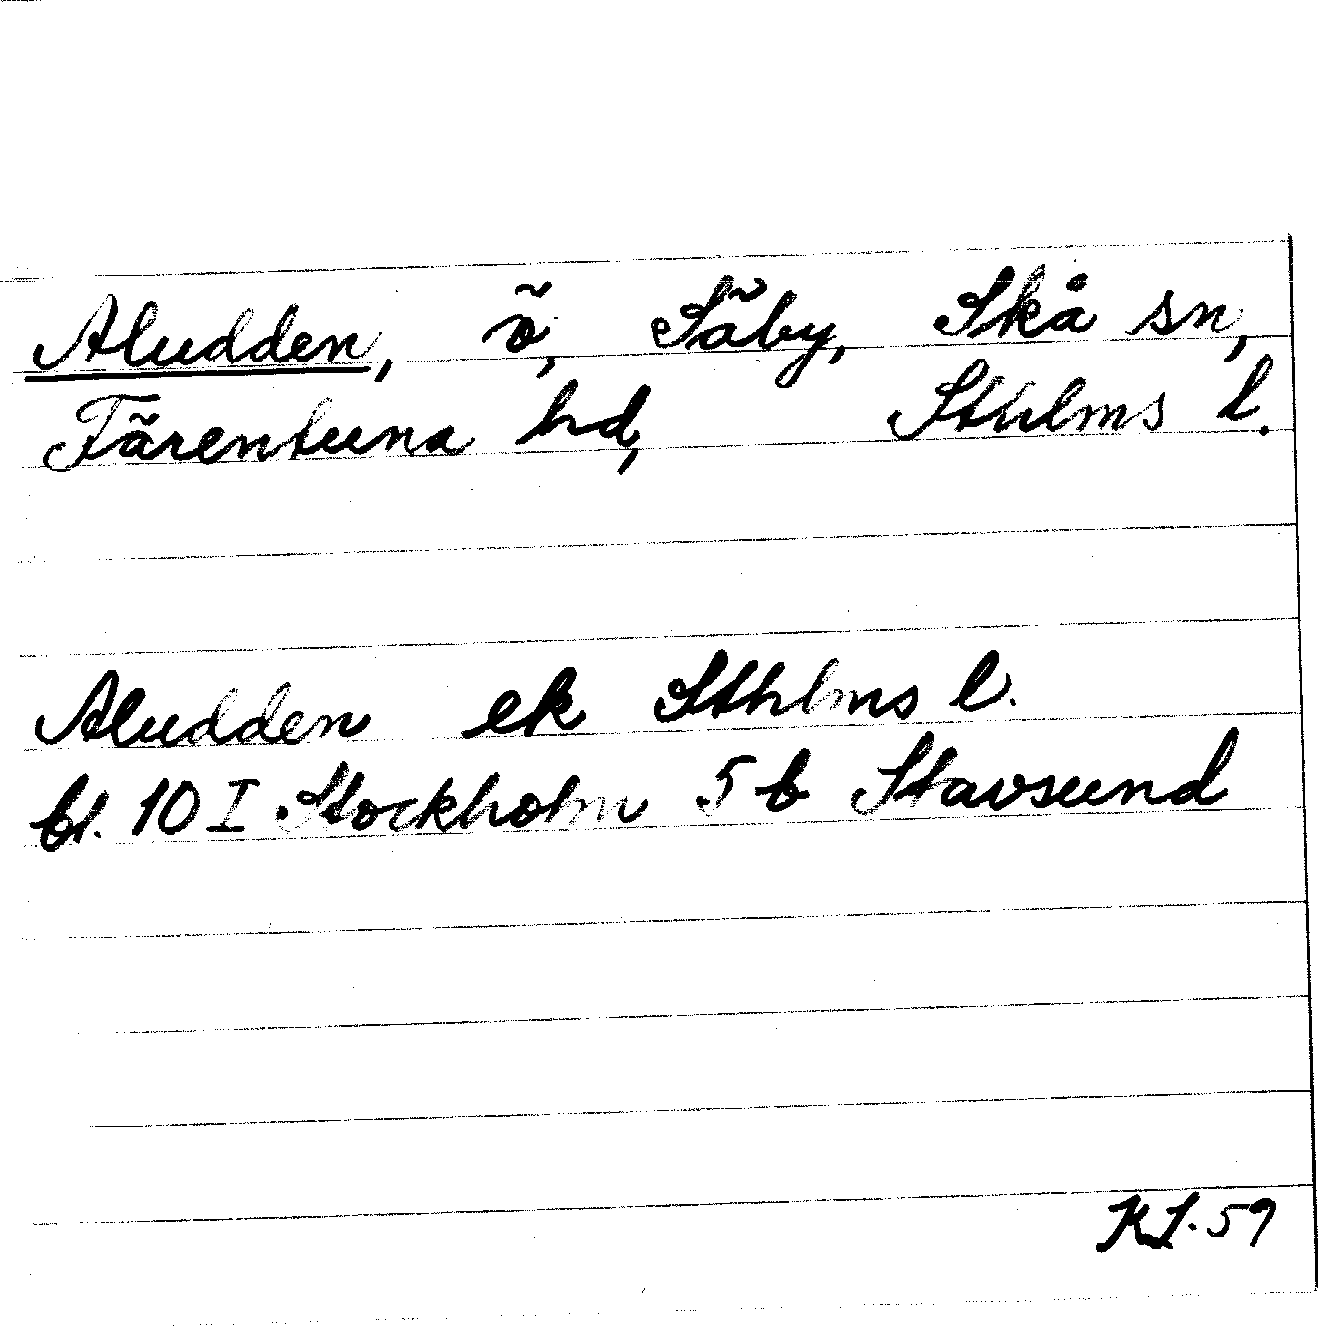 Aludden, ö, Säby, Skå sn,
Färentuna hd, Sthlms l.
Aludden ek Sthlms l.
bl. 10 I Stockholm 5 b Stavsund
KL. 59